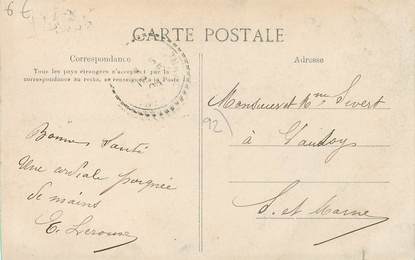 6 €
CARTE POSTALE
Correspondance
Tous les pays étrangers n'acceptent pas la
correspondance au recto, se renseigner à la Poste
Adresse
Monsieur et Mme Sivert
92
à Vaudoy
S. et Marne
Bonne Santé
Une cordiale poignée
de mains
E. Leroux